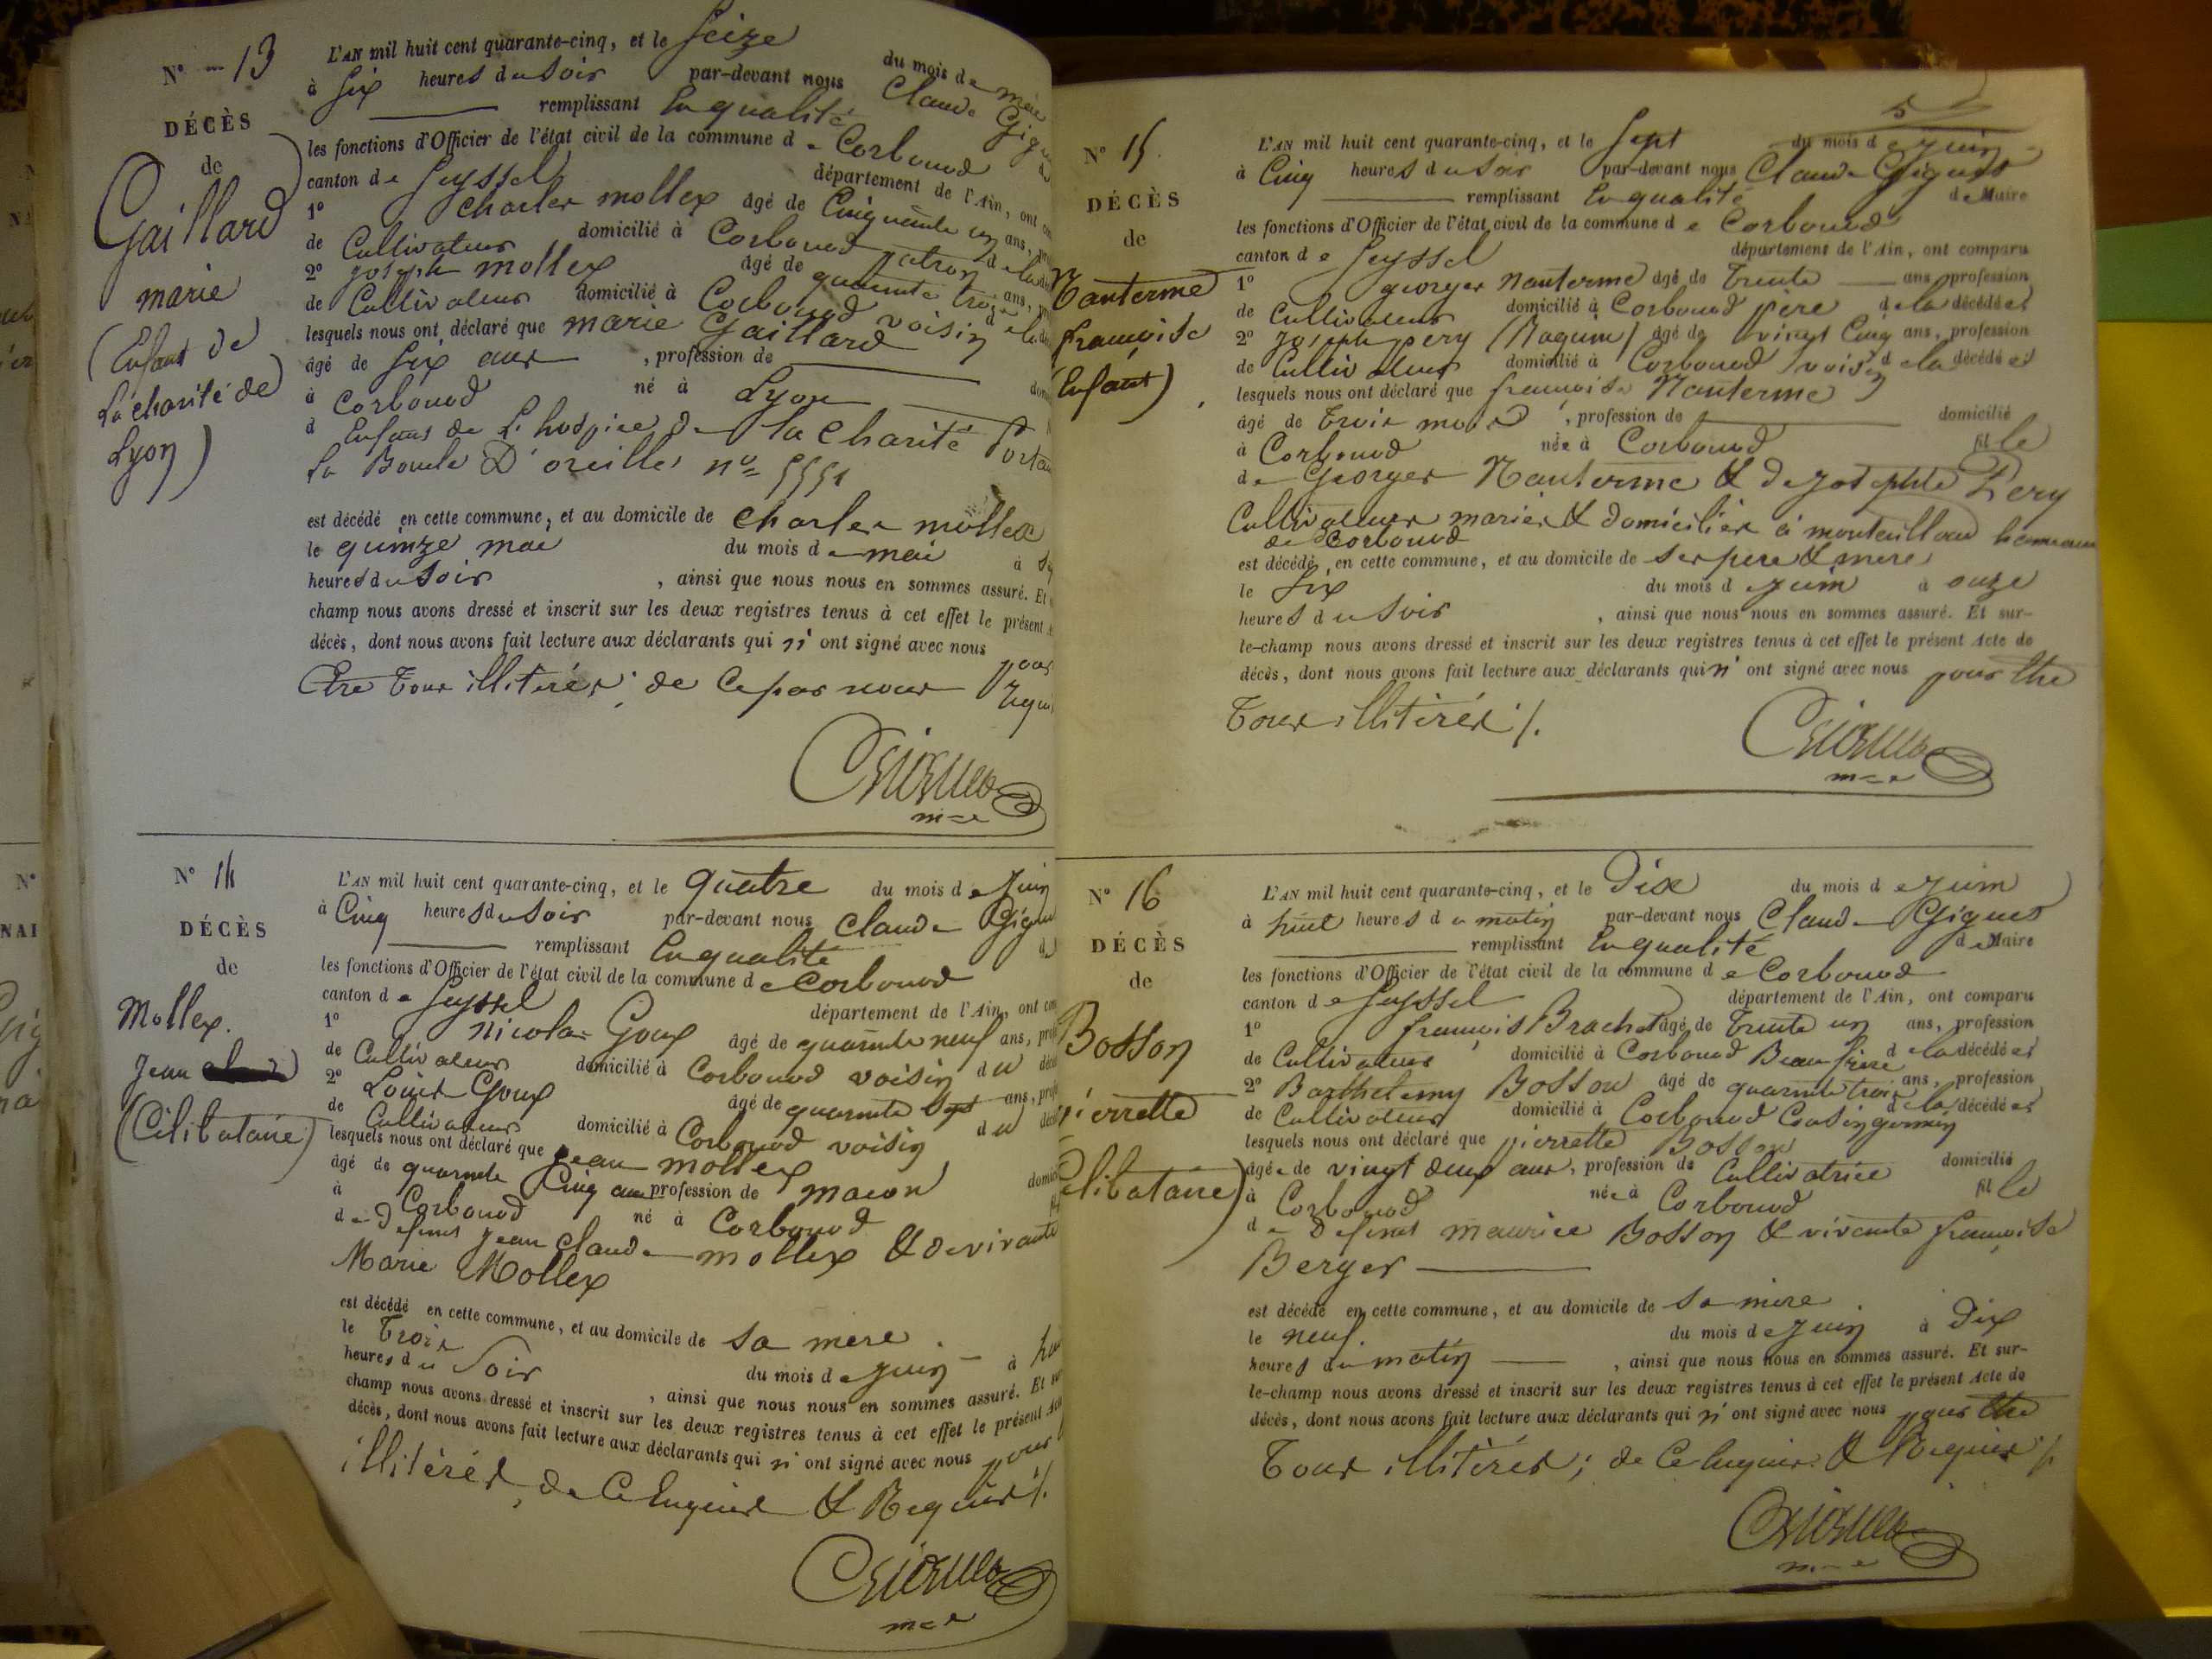 N° 13
DÉCÈS
de
Gaillard
marie
(Enfant de
La charité de
Lyon)
L'AN mil huit cent quarante-cinq, et le seize du mois de mai
à six heures du soir par-devant nous Claude
remplissant En qualité
les fonctions d'Officier de l'état civil de la commune de Corbonod
canton de Seyssel département de l'Ain, ont
1° Charles mollex âgé de Cinquante un ans,
de Cultivateur domicilié à Corbonod patron de la
2° joseph mollex âgé de quarante trois ans,
de Cultivateur domicilié à Corbonod voisin de la
lesquels nous ont déclaré que marie Gaillard
âgé de six ans , profession de
à Corbonod né à Lyon
d Enfant de L'hospice de la Charité
La Boucle D'oreilles n° 5551
est décédé en cette commune, et au domicile de Charles mollex
le quinze mai du mois de mai à
heures du soir , ainsi que nous nous en sommes assuré. Et
champ nous avons dressé et inscrit sur les deux registres tenus à cet effet le présent
décès, dont nous avons fait lecture aux déclarants qui n'ont signé avec nous pour
Etre tous illitérés; de ce par nous
m=e
N° 14
DÉCÈS
de
Mollex.
Jean
(Célibataire)
L'AN mil huit cent quarante-cinq, et le quatre du mois de juin
à Cinq heures du soir par-devant nous Claude
remplissant En qualité
les fonctions d'Officier de l'état civil de la commune de Corbonod
canton de Seyssel département de l'Ain, ont
1° nicolas Goux âgé de quarante neuf ans,
de Cultivateur domicilié à Corbonod voisin du
2° Louis Goux âgé de quarante sept ans,
de Cultivateur domicilié à Corbonod voisin du
lesquels nous ont déclaré que jean mollex
âgé de quarante Cinq ans profession de macon
à Corbonod né à Corbonod
de Defunt jean claude mollex & de vivante
Marie Mollex
est décédé en cette commune, et au domicile de sa mere
le Trois du mois de juin à
heures du soir , ainsi que nous nous en sommes assuré. Et
champ nous avons dressé et inscrit sur les deux registres tenus à cet effet le présent
décès, dont nous avons fait lecture aux déclarants qui n'ont signé avec nous pour
illitérés, de ce Enquis & Requis /.
m=e
N° 15
DÉCÈS
de
Nanterme
françoise
(Enfant)
L'AN mil huit cent quarante-cinq, et le sept du mois de juin
à Cinq heures du soir par-devant nous Claude Gignet
remplissant En qualité de Maire
les fonctions d'Officier de l'état civil de la commune de Corbonod
canton de Seyssel département de l'Ain, ont comparu
1° georges Nanterme âgé de trente ans, profession
de Cultivateur domicilié à Corbonod père de la décédée
2° joseph pery âgé de vingt Cinq ans, profession
de Cultivateur domicilié à Corbonod voisin de la décédée
lesquels nous ont déclaré que françoise Nanterme
âgé de trois mois , profession de domicilié
à Corbonod née à Corbonod fille
de Georges Nanterme & de josephte Pery
Cultivateurs mariés & domiciliés à monteillou hameau
de Corbonod
est décédé, en cette commune, et au domicile de ses pere & mere
le six du mois de juin à onze
heures du soir , ainsi que nous nous en sommes assuré. Et sur-
le-champ nous avons dressé et inscrit sur les deux registres tenus à cet effet le présent Acte de
décès, dont nous avons fait lecture aux déclarants qui n'ont signé avec nous pour être
Tous illitérés /.
m=e
N° 16
DÉCÈS
de
Bosson
pierrette
Célibataire)
L'AN mil huit cent quarante-cinq, et le Dix du mois de juin
à huit heures du matin par-devant nous Claude Gignet
remplissant En qualité de Maire
les fonctions d'Officier de l'état civil de la commune de Corbonod
canton de Seyssel département de l'Ain, ont comparu
1° françois Brachet âgé de trente un ans, profession
de Cultivateur domicilié à Corbonod Beau frere de la décédée
2° Barthelemy Bosson âgé de quarante trois ans, profession
de Cultivateur domicilié à Corbonod Cousin germain de la décédée
lesquels nous ont déclaré que pierrette Bosson
âgée de vingt deux ans, profession de Cultivatrice domicilié
à Corbonod née à Corbonod fille
de Defunt maurice Bosson & vivante françoise
Berger
est décédé en cette commune, et au domicile de sa mere
le neuf du mois de juin à Dix
heures du matin , ainsi que nous nous en sommes assuré. Et sur-
le-champ nous avons dressé et inscrit sur les deux registres tenus à cet effet le présent Acte de
décès, dont nous avons fait lecture aux déclarants qui n'ont signé avec nous pour être
Tous illitérés; de ce Enquis & Requis /.
m=e